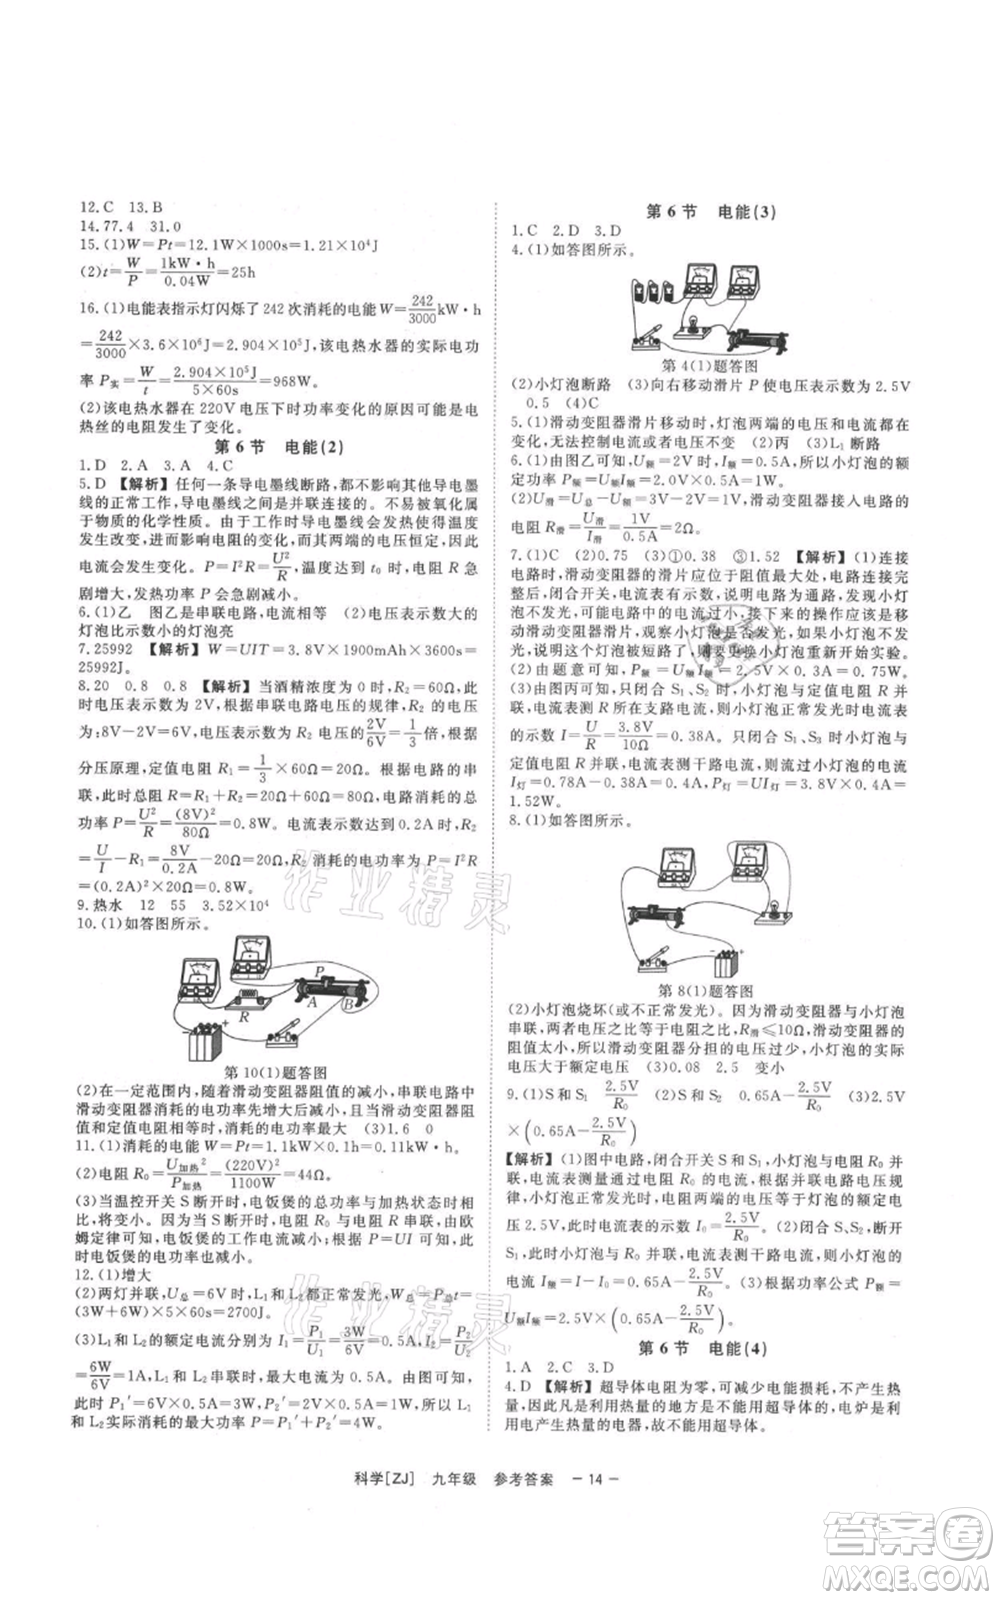 12.C 13.B
14.77.4 31.0
15.(1)W=Pt=12.1W×1000s=1.21×10⁴J
(2)t=W/P=1kW·h/0.04W=25h
16.(1)电能表指示灯闪烁了242次消耗的电能W=242/3000kW·h
=242/3000×3.6×10⁶J=2.904×10⁵J,该电热水器的实际电功
率P实=W/t=2.904×10⁵J/5×60s=968W。
(2)该电热水器在220V电压下时功率变化的原因可能是电
热丝的电阻发生了变化。
第6节 电能(2)
1.D 2.A 3.A 4.C
5.D 【解析】任何一条导电墨线断路,不影响其他导电墨线
的正常工作,导电墨线之间是并联连接的。不易被氧化属
于物质的化学性质。由于工作时导电墨线会发热使得温度
发生改变,进而影响电阻的变化,而其两端的电压恒定,因此
电流会有变化。P=I²R=U²/R,温度达到t₀时,电阻R急
剧增大,发热功率急剧减小。
6.(1)乙 图乙是串联电路,电流相等 (2)电压表示数大的
灯泡比示数小的灯泡亮
7.25992 【解析】W=UIT=3.8V×1900mAh×3600s=
25992J。
8.20 0.8 0.8 【解析】当酒精浓度为0时,R₂=60Ω,此
时电压表示数为2V,根据串联电路电压的规律,R₂的电压
为:8V-2V=6V,电压表示数为R₂电压的2V/6V=1/3倍,根据
分压原理,定值电阻R₁=1/3×60Ω=20Ω。根据电路的串
联,此时总电阻R=R₁+R₂=20Ω+60Ω=80Ω,电路消耗的总
功率P=U²/R=(8V)²/80Ω=0.8W。电流表示数达到0.2A时,R₂
=U/I-R₁=8V/0.2A-20Ω=20Ω,R₂消耗的电功率P=I²R=
(0.2A)²×20Ω=0.8W。
9.热水 12 55 3.52×10⁴
10.(1)如答图所示。
P
A
B
R
+
第10(1)题答图
(2)在一定范围内,随着滑动变阻器阻值的减小,串联电路中
滑动变阻器消耗的电功率先增大后减小,且当滑动变阻器阻
值和定值电阻相等时,消耗的电功率最大 (3)1.6 0
11.(1)消耗的电能W=Pt=1.1kW×0.1h=0.11kW·h。
(2)电阻R₀=U加热²/P加热=(220V)²/1100W=44Ω
(3)当温控开关S断开时,电饭煲的总功率与加热状态时相
比,将变小。因为当S断开时,电阻R₀与电阻R串联,由欧
姆定律可知,电饭煲的工作电流减小,由P=UI可知,此
时电饭煲的电功率也变小。
12.(1)增大
(2)两灯并联,都正常发光,消耗的电能为W总=P总t=
(3W+6W)×5×60s=2700J。
(3)L₁和L₂的额定电流分别为I₁=P₁/U₁=3W/6V=0.5A,I₂=P₂/U₂
=6W/6V=1A,L₁和L₂串联,电路中的最大电流I=I₁=0.5A,
此时实际功率P₁′=P₁=3W,P₂′=I²R₂=1.5W,所以L₁
和L₂实际消耗的最大功率P=P₁′+P₂′=3W+1.5W=4.5W
第6节 电能(3)
1.C 2.D 3.D
4.(1)如答图所示。
第4(1)题答图
(2)小灯泡断路 (3)向右移动滑片P使电压表示数为2.5V
0.5 (4)C
5.(1)滑动变阻器滑片移动时,灯泡两端的电压和电流都会
变化,无法控制电流或者电压不变 (2)丙 (3)L₁断路
6.(1)由图乙可知,U额=2V时,I额=0.5A,所以小灯泡的额
定功率P额=U额I额=2.0V×0.5A=1W。
(2)U滑=U总-U额=3V-2V=1V,滑动变阻器接入电路的
电阻R滑=U滑/I额=1V/0.5A=2Ω。
7.(1)C (2)0.75 (3)①0.38 ③1.52 【解析】(1)连接
电路时,滑动变阻器的滑片应位于阻值最大处,电路连接完
后,闭合开关,电压表有示数,说明电路为通路,发现小灯
泡不发光,可能电路中的电流过小;接下来的操作应该是移
动滑动变阻器滑片,观察小灯泡是否发光,如果小灯泡不
发光,说明这个小灯泡被短路了,换小灯泡重新开始实验。
(2)由题意可知,P额=U额I额=2.5V×0.3A=0.75W。
(3)由图丙可知,当只闭合S₁、S₂时,小灯泡与定值电阻R并
联,电流表测R所在支路电流,小灯泡正常发光时电流表
的示数I=U/R=3.8V/10Ω=0.38A。只闭合S₁、S₃时小灯泡与定
值电阻R并联,电流表测干路电流,流过小灯泡的电流
I灯=0.78A-0.38A=0.4A,P灯=UI灯=3.8V×0.4A=
1.52W。
8.(1)如答图所示。
第8(1)题答图
(2)小灯泡烧坏(或不正常发光)。因为滑动变阻器与小灯泡
串联,两者电压之比等于电阻之比,R滑≤10Ω,滑动变阻器的
阻值太小,所以滑动变阻器分担的电压过小,小灯泡的实际
电压大于额定电压 (3)0.08 2.5 变小
9.(1)S和S₁ 2.5V/R₀ (2)S和S₂ 0.65A-2.5V/R₀ (3)2.5V
×(0.65A-2.5V/R₀)
【解析】(1)图中电路,闭合开关S和S₁,小灯泡与电阻R₀并
联,电流表测量通过电阻R₀的电流,根据并联电路电压规
律,小灯泡正常发光时,电阻两端的电压与灯泡的额定电
压2.5V,此时电流表的示数I₀=2.5V/R₀。(2)闭合S、S₂,断开
S₁,此时小灯泡与R₀并联,电流表测干路电流,小灯泡的
电流I额=I-I₀=0.65A-2.5V/R₀。(3)根据功率公式P额=
U额I额=2.5V×(0.65A-2.5V/R₀)。
第6节 电能(4)
1.A 2.C 3.D
4.D 【解析】超导体电阻为零,可减少电能损耗,不会产生电
热,因此凡是利用热量的场所都不适合使用超导体,电炉是
利用电来产生热的电器,故不能使用超导体。
科学[ZJ] 九年级 参考答案 -14-
作业精灵
作业精灵
答案卷
MXQE.COM